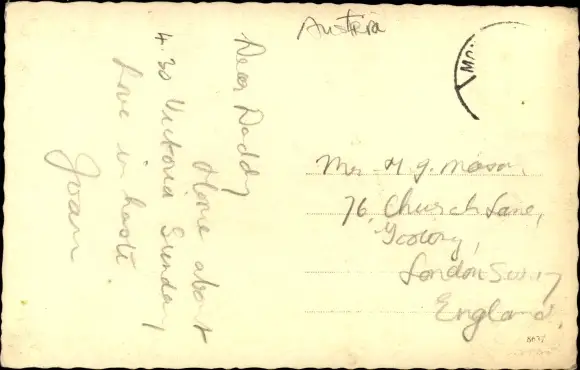 Austria
Dear Daddy
Home about
4.30 Victoria Sunday
Love in haste
Joan
Mr H J. Mason,
76, Church Lane,
Tooting,
London Surrey
England.